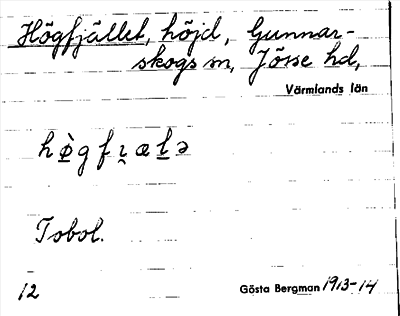 Högfjället, höjd, Gunnar-
skogs sn, Jösse hd,
Värmlands län
hø̀gfi̯æḷə
Tobol.
12
Gösta Bergman 1913-14